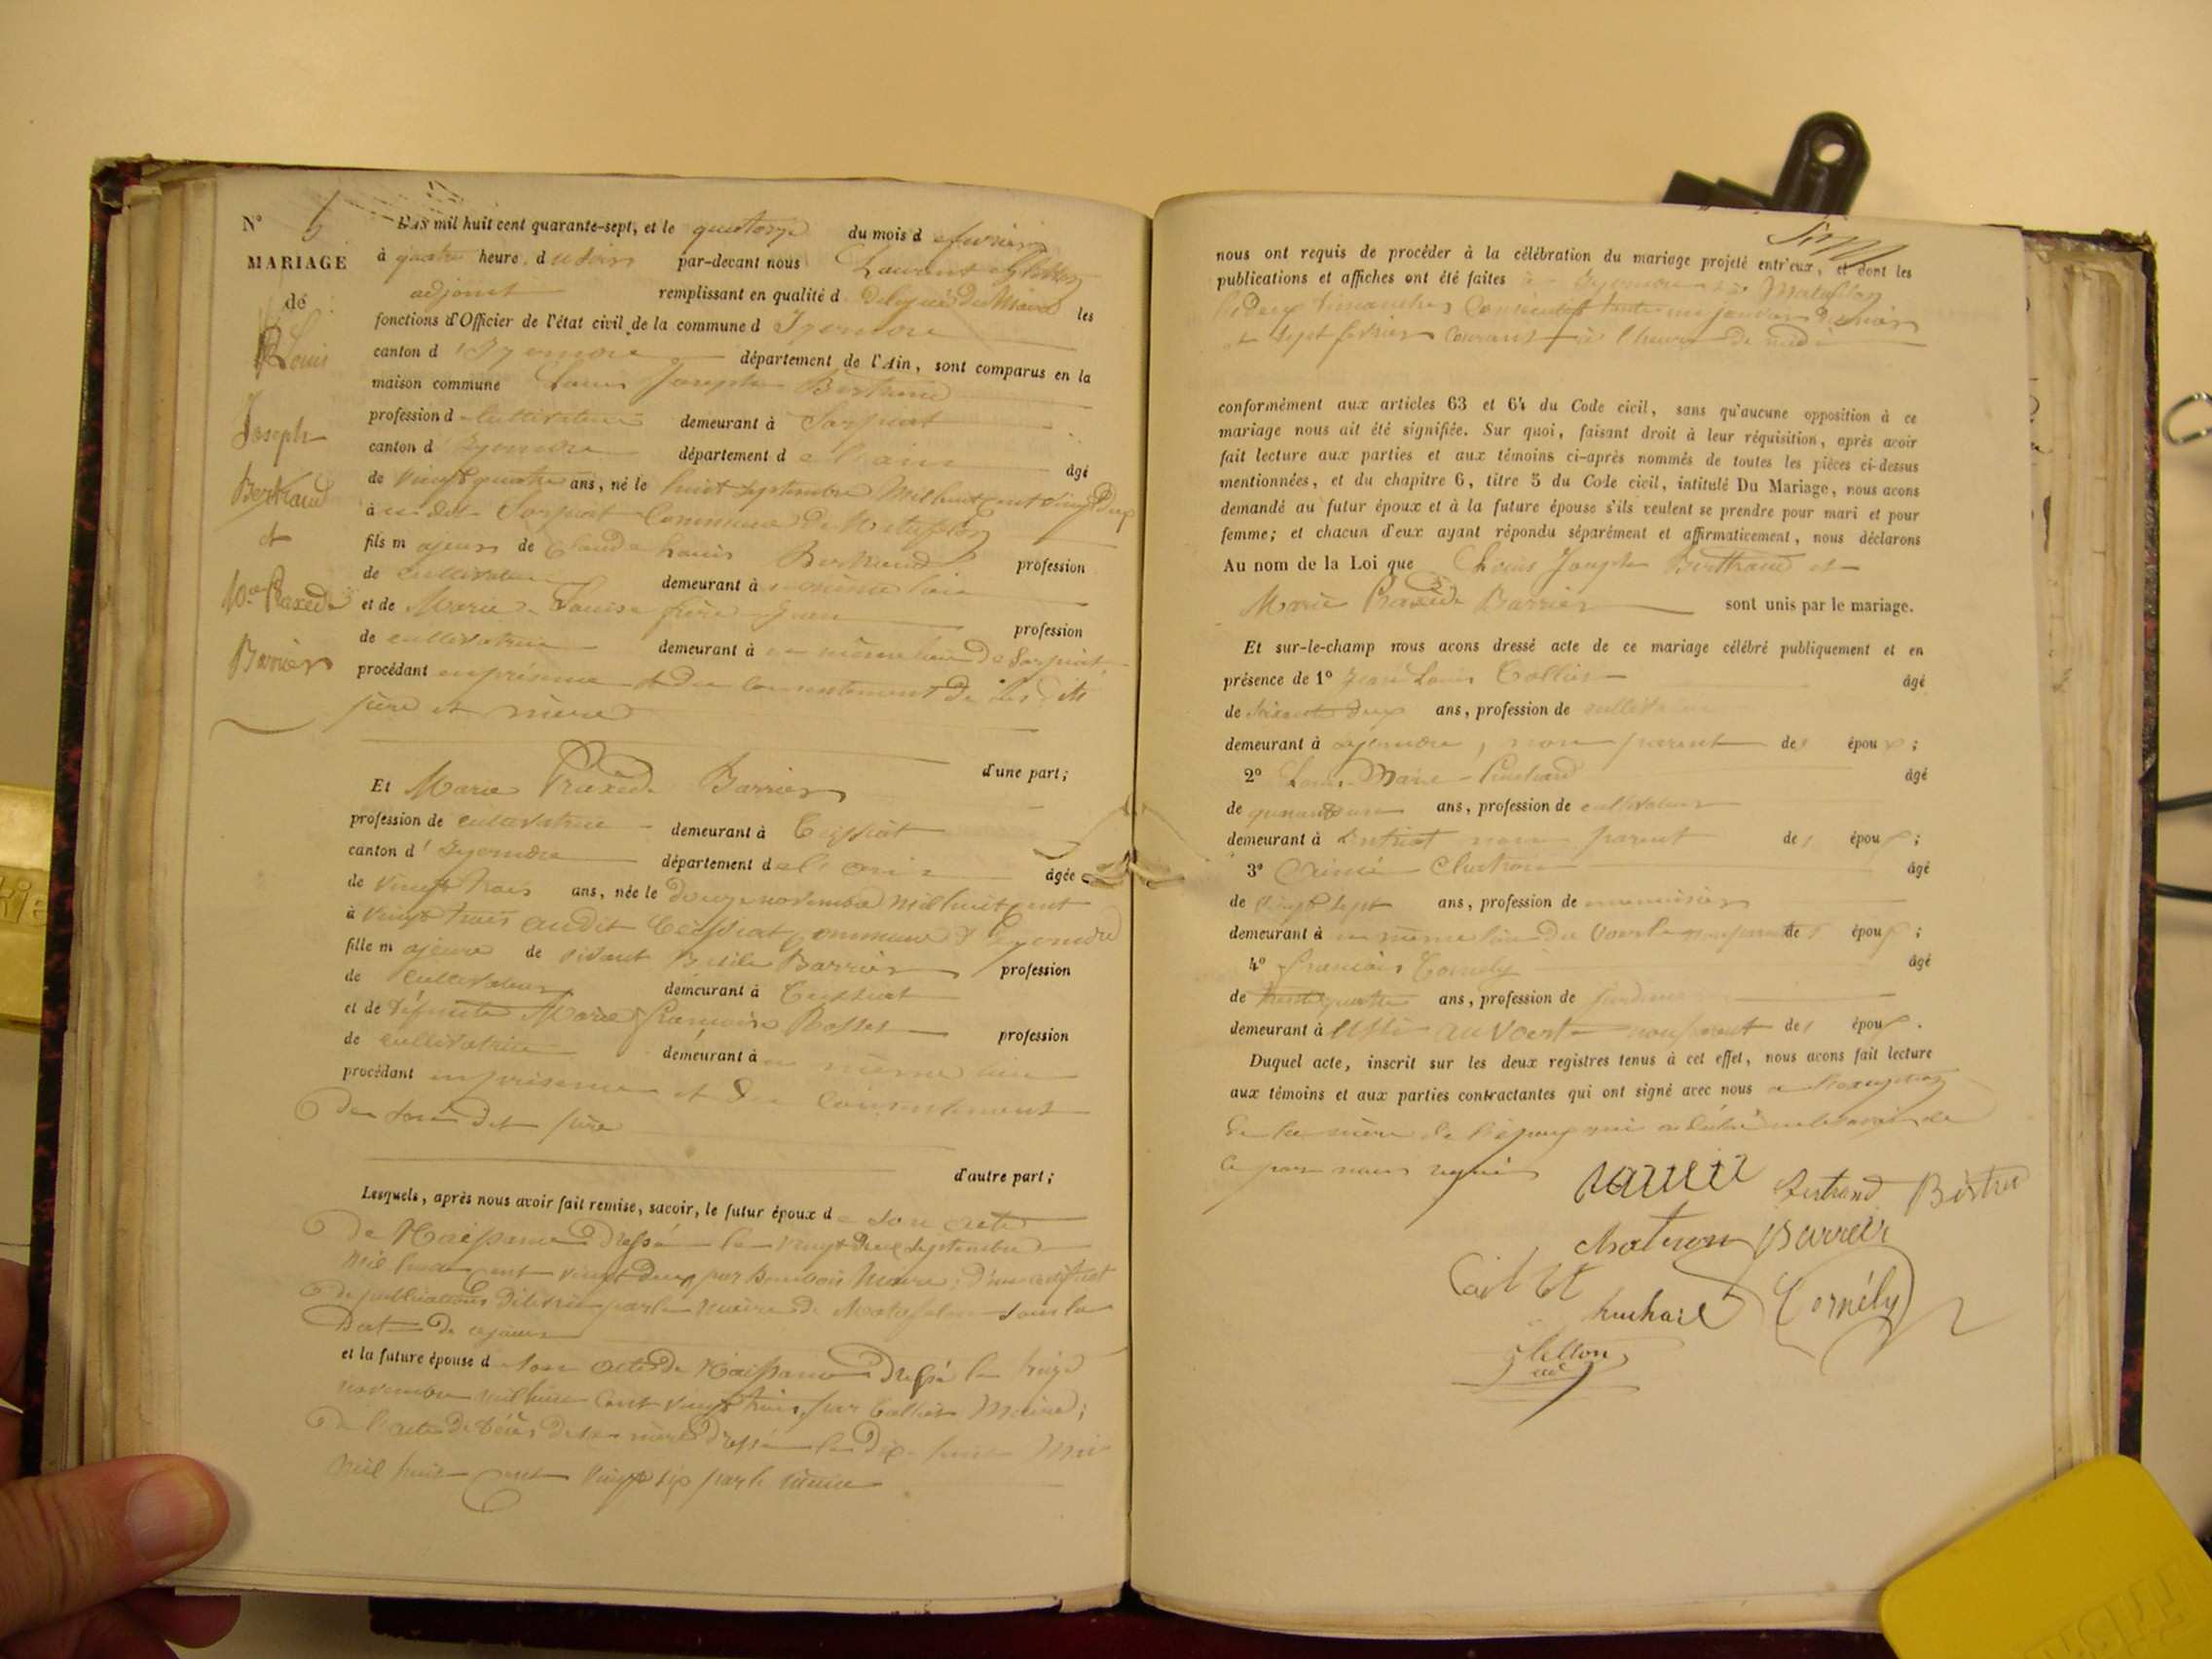 N° 5
MARIAGE
de
Louis
Joseph
Bertrand
et
Mie Praxède
Barrier
L'AN mil huit cent quarante-sept, et le quatorze du mois d e fevrier
à quatre heure du soir par-devant nous Laurent
adjoint remplissant en qualité d délégué du Maire les
fonctions d'Officier de l'état civil de la commune d Izernore
canton d'Izernore département de l'Ain, sont comparus en la
maison commune Louis Joseph Bertrand
profession de cultivateur demeurant à
canton d'Izernore département de l'ain âgé
de vingt quatre ans, né le huit septembre mil huit cent vingt deux
à Commune de
fils majeur de Claude Louis Bertrand profession
de cultivateur demeurant à même lieu
et de Marie Louise profession
de cultivatrice demeurant à même lieu de
procédant en présence et du consentement de ses dits
père et mère
d'une part;
Et Marie Praxède Barrier
profession de cultivatrice demeurant à Ceissiat
canton d'Izernore département de l'ain âgée
de vingt trois ans, née le douze novembre mil huit cent
vingt trois audit Ceissiat commune d'Izernore
fille majeure de vivant Barrier profession
de cultivateur demeurant à Ceissiat
et de défunte Marie Françoise Rosset profession
de cultivatrice demeurant à même lieu
procédant en présence et du consentement
de son dit père
d'autre part;
Lesquels, après nous avoir fait remise, savoir, le futur époux de son acte
de Naissance dressé le vingt deux septembre
mil huit cent vingt deux par Maire; d'un certificat
de publications délivré par le Maire de sous la
date de ce jour
et la future épouse d son acte de Naissance dressé le treize
novembre mil huit cent vingt trois, par Collier Maire;
de l'acte de décès de sa mère dressé le dix huit Mai
mil huit cent vingt six par le même
nous ont requis de procéder à la célébration du mariage projeté entr'eux, et dont les
publications et affiches ont été faites à Izernore et à
les deux dimanches consécutifs trente un janvier dernier
et sept fevrier courant à l'heure de midi
conformément aux articles 63 et 64 du Code civil, sans qu'aucune opposition à ce
mariage nous ait été signifiée. Sur quoi, faisant droit à leur réquisition, après avoir
fait lecture aux parties et aux témoins ci-après nommés de toutes les pièces ci-dessus
mentionnées, et du chapitre 6, titre 5 du Code civil, intitulé Du Mariage, nous avons
demandé au futur époux et à la future épouse s'ils veulent se prendre pour mari et pour
femme; et chacun d'eux ayant répondu séparément et affirmativement, nous déclarons
Au nom de la Loi que Louis Joseph Bertrand et
Marie Praxède Barrier sont unis par le mariage.
Et sur-le-champ nous avons dressé acte de ce mariage célébré publiquement et en
présence de 1° Jean Louis Collier âgé
de soixante deux ans, profession de cultivateur
demeurant à Izernore, non parent des époux;
2° Louis Marie âgé
de quarante un ans, profession de cultivateur
demeurant à non parent des époux;
3° Aimé âgé
de vingt sept ans, profession de menuisier
demeurant à même lieu du Voerle non parent des époux;
4° François Cornély âgé
de trente quatre ans, profession de
demeurant à non parent des époux.
Duquel acte, inscrit sur les deux registres tenus à cet effet, nous avons fait lecture
aux témoins et aux parties contractantes qui ont signé avec nous à l'exception
de la mère de l'époux qui a déclaré ne le savoir de
ce par nous requis
Bertrand
Barrier
Cornély